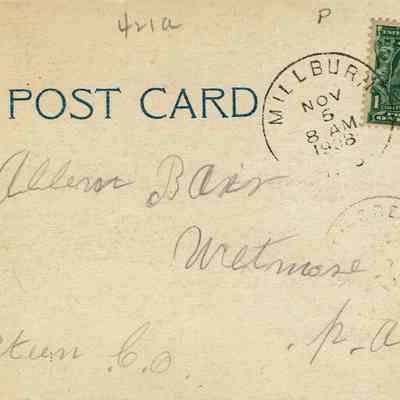 421a P
POST CARD
MILLBURN
NOV
5
8 AM
1908
1
Allern Bair
Wetmore
Kean Co. P.a